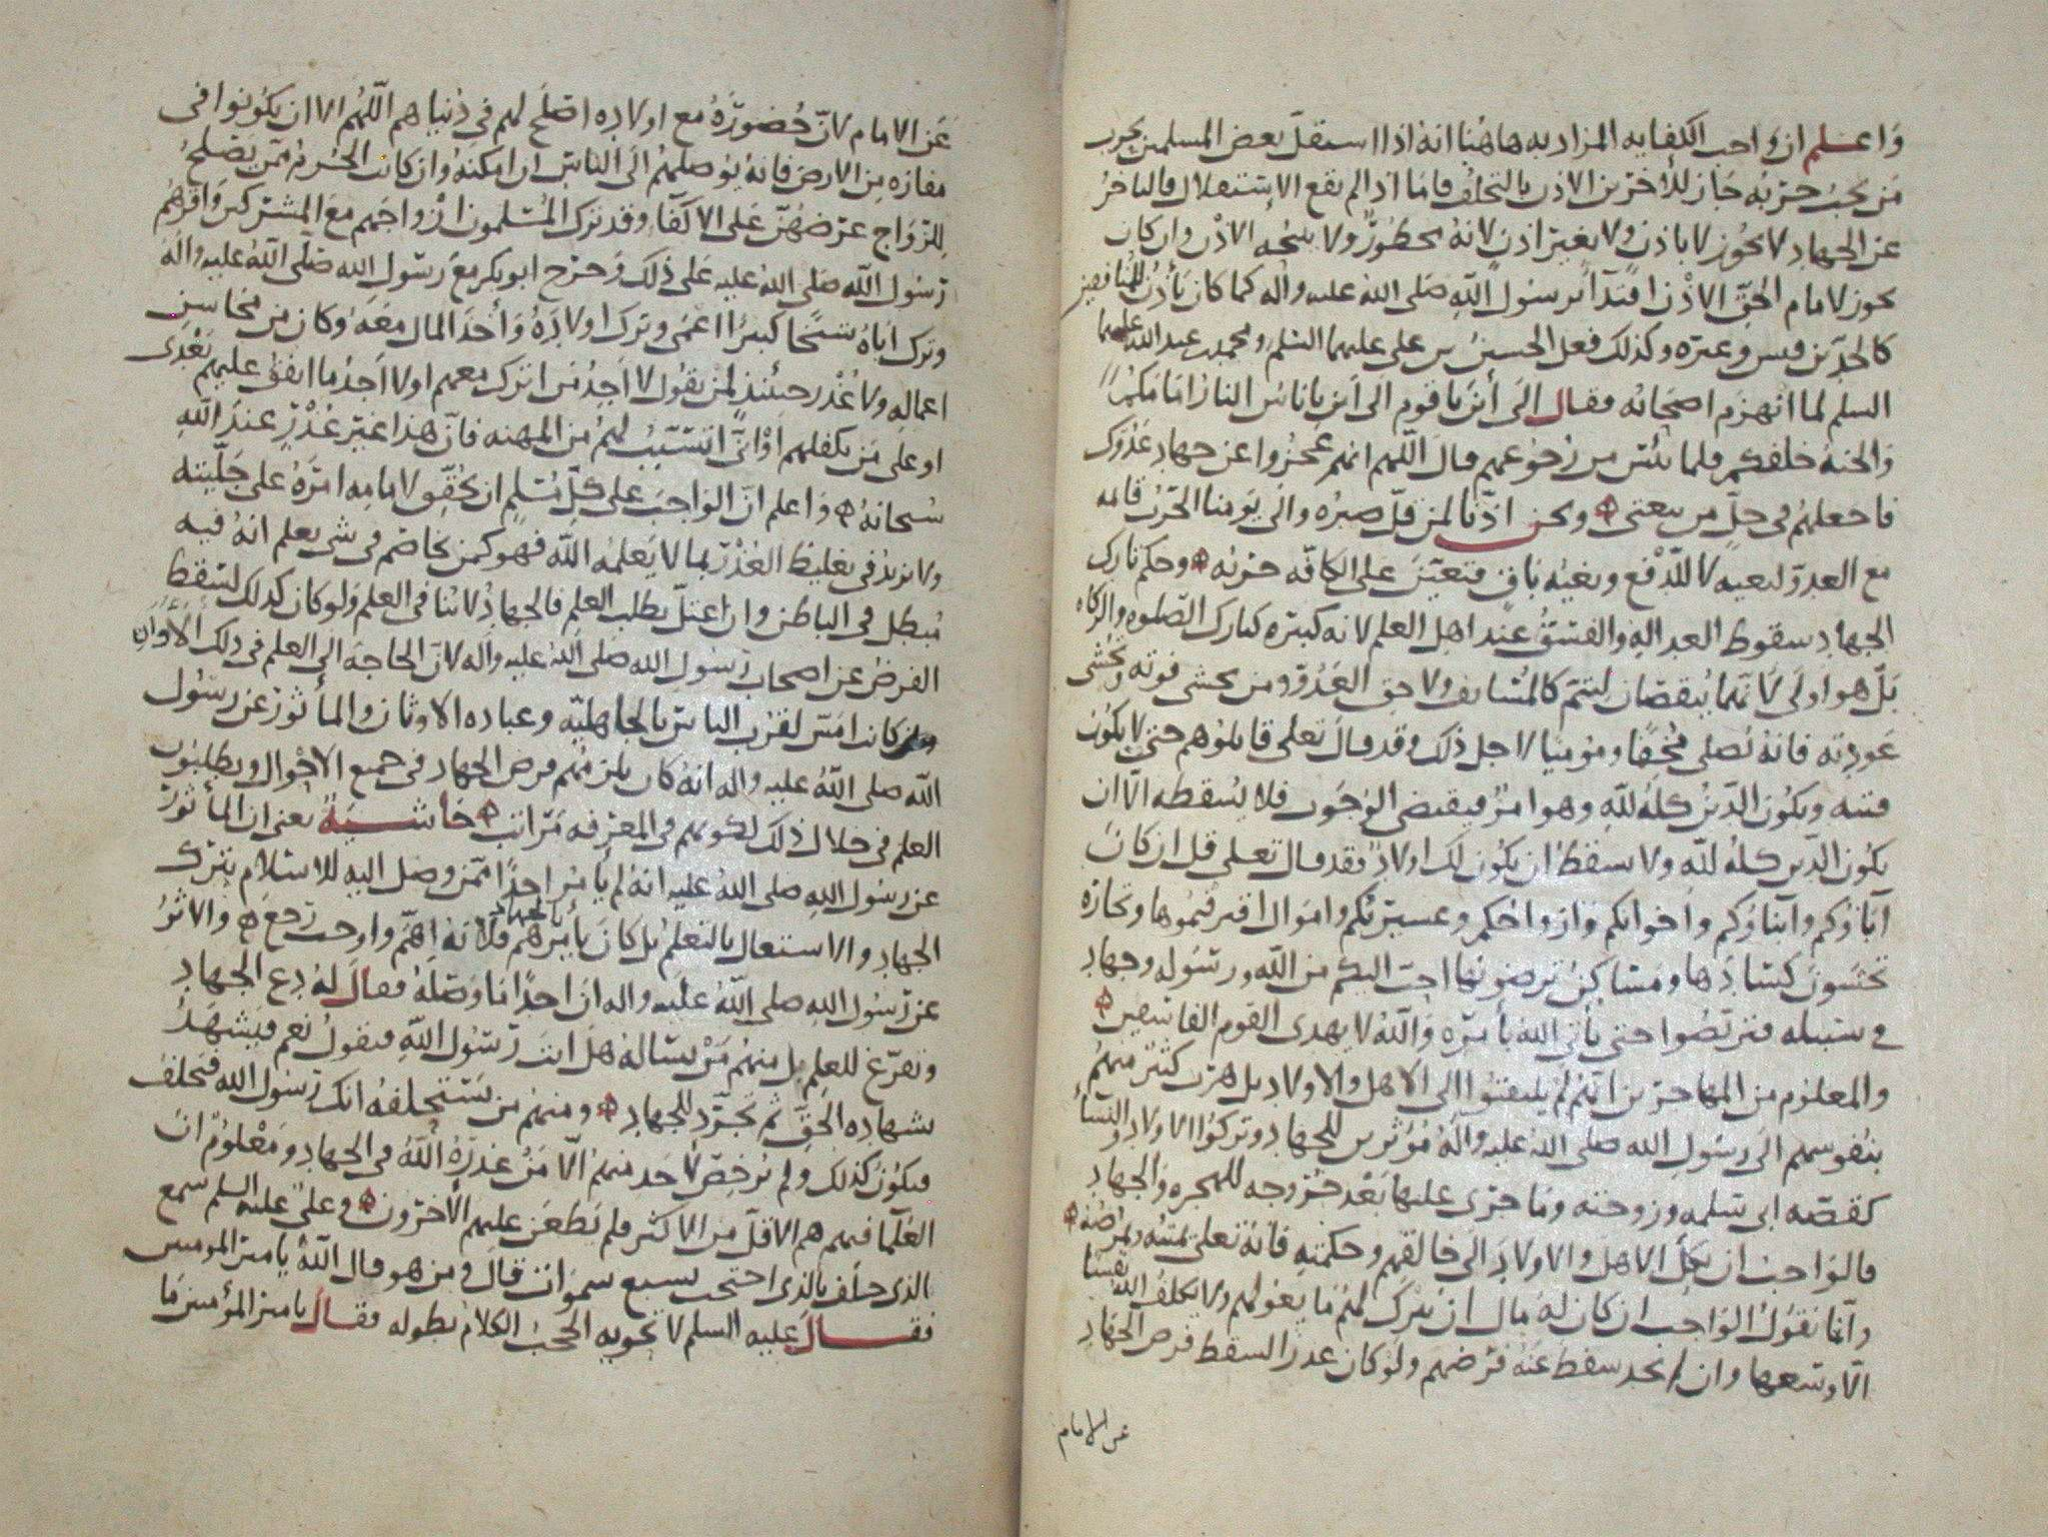 واعلم ان واجب الكفايه المراد به هاهنا انه اذا استقل بعض المسلمين بحرب
من يجب حربه جاز للآخرين الاذن بالتخلف فاما اذا لم يقع الاستقلال فالتاخر
عن الجهاد لا يجوز لا باذن ولا بغير اذن لانه محظور ولا يبيحه الاذن وان كان
يجوز لامام الحق الاذن اقتدآ برسول الله صلى الله عليه واله كما كان يأذن للمنافقين
كالجد بن قيس وغيره وكذلك فعل الحسين بن على عليهما السلم ومحمد بن عبد الله عليهما
السلم لما انهزم اصحابه فقال الى أين يا قوم الى أين يا ناس النار امامكم
والجنة خلفكم فلما يئس من رجوعهم قال اللهم انهم عجزوا عن جهاد عدوك
فاجعلهم فى حل من بيعتى ونحن اذنا لمن قل صبره والى يومنا الحرب قائمه
مع العدو لبغيه لا للدفع وبغيه باق فتعين على الكافه حربه وحكم تارك
الجهاد سقوط العداله والفسق عند اهل العلم لانه كبيره كتارك الصلوه والزكاه
بل هو اولى لانهما ينقصان ليتم كالمسايف ولاحق العدو ومن يخشى فوته ويخشى
عودته فانه يصلى مخففا ومؤميا لاجل ذلك وقد قال تعلى قاتلوهم حتى لا يكون
فتنه ويكون الدين كله لله وهو امر فيقتضى الوجوب فلا يسقطه الا ان
يكون الدين كله لله ولا يسقط ان يكون لك اولاد فقد قال تعلى قل ان كان
آباؤكم وأبناؤكم واخوانكم وازواجكم وعشيرتكم واموال اقترفتموها وتجارة
تخشون كسادها ومساكن ترضونها احب اليكم من الله ورسوله وجهاد
فى سبيله فتربصوا حتى يأتى الله بأمره والله لا يهدى القوم الفاسقين
والمعلوم من المهاجرين انهم لم يلتفتوا الى الاهل والاولاد بل هرب كثير منهم
بنفوسهم الى رسول الله صلى الله عليه وآله مؤثرين للجهاد وتركوا الاولاد والنسآ
كقصه ابى سلمه وزوجته وما جرى عليها بعد خروجه للهجره والجهاد
فالواجب ان يكل الاهل والاولاد الى خالقهم وحكمته فانه تعلى يميته ويمرضه
وانما نقول الواجب ان كان له مال ان يترك لهم ما يعولهم ولا يكلف الله نفسا
الا وسعها وان لم يجد سقط عنه فرضهم ولو كان عذرا لسقط فرض الجهاد
عن الامام
عن الامام لان حضوره مع اولاده اصلح لهم فى دنياهم اللهم الا ان يكونوا فى
مفازه من الارض فانه يوصلهم الى الناس ان امكنه وان كانت الحرمه ممن يصلح
للزواج عرضهن على الاكفآ وقد ترك المسلمون ازواجهم مع المشركين واقرهم
رسول الله صلى الله عليه على ذلك وخرج ابو بكر مع رسول الله صلى الله عليه واله
وترك اباه شيخا كبيرا اعمى وترك اولاده وأخذ المال معه وكان من محاسن
اعماله ولا عذر حينئذ لمن يقول لا اجد من اترك معهم او لا اجد ما انفق عليهم بعدى
او على من يكفلهم او انى اتسبب لهم من المهنه فان هذا غير عذر عند الله
سبحانه واعلم ان الواجب على كل مسلم ان يحقق لامامه امره على جليته
ولا يزيد فى تغليظ العذر بما لا يعلمه الله فهو كمن يخاصم فى شى يعلم انه فيه
مبطل فى الباطن وان اعتل بطلب العلم فالجهاد لا ينافى العلم ولو كان كذلك لسقط
الفرض عن اصحاب رسول الله صلى الله عليه واله لان الحاجه الى العلم فى ذلك الاوان
كانت امس لقرب الناس بالجاهليه وعباده الاوثان والمأثور عن رسول
الله صلى الله عليه واله انه كان يلزمهم فرض الجهاد فى جميع الاحوال ويطلبون
العلم فى خلال ذلك لكونهم فى المعرفه مراتب حاشية يعنى ان المأثور
عن رسول الله صلى الله عليه انه لم يأمر احدا ممن وصل اليه للاسلام بترك
الجهاد والاشتغال بالتعلم بل كان يأمرهم بالجهاد فلانه اهم واوجب رجع والاثر
عن رسول الله صلى الله عليه واله ان احدا ما وصله فقال له دع الجهاد
وتفرغ للعلم بل منهم من يسأله هل انت رسول الله فيقول نعم فيشهد
شهاده الحق ثم تجرد للجهاد ومنهم من يستحلفه انك رسول الله فيحلف
فيكون كذلك ولم يرخص لاحد منهم الا من عذره الله فى الجهاد ومعلوم ان
العلمآ فيهم هم الاقل من الاكثر فلم يطعن عليهم الآخرون وعلى عليه السلم سمع
الذى حلف بالذى احتجب بسبع سموات قال ومن هو قال الله يا امير المومنين
فقال عليه السلم لا تحويه الحجب الكلام بطوله فقال يا امير المؤمنين ما